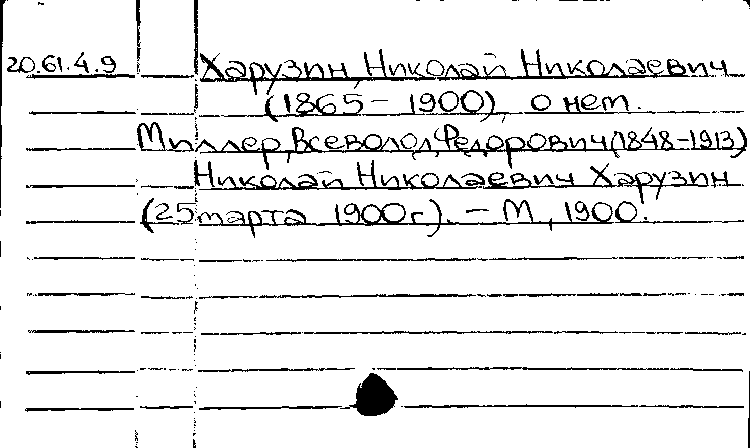 20.61.4.9 Харузин, Николай Николаевич
(1865 – 1900), о нем.
Миллер, Всеволод Федорович (1848-1913)
Николай Николаевич Харузин
(25 марта 1900г.). – М., 1900.